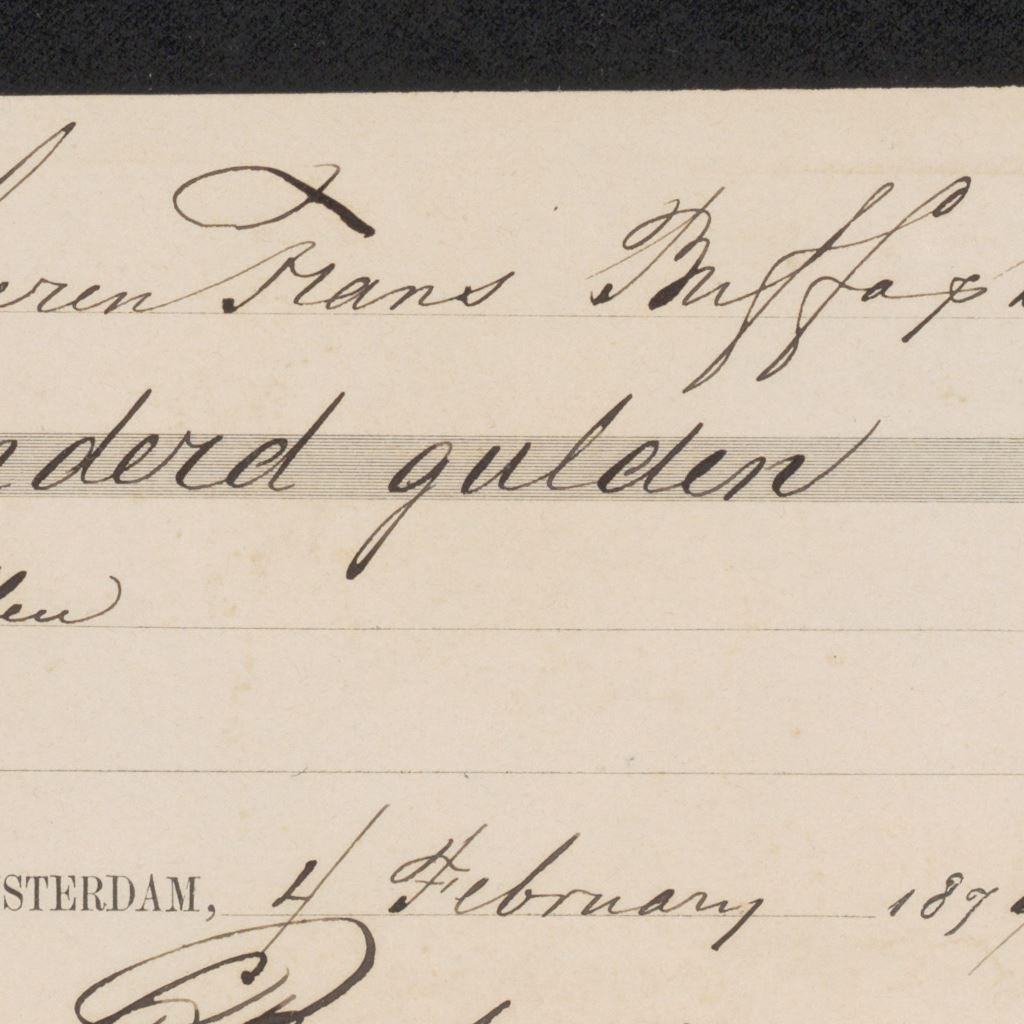 eren Frans Buffa &
nderd gulden
len
STERDAM, 4 February 187